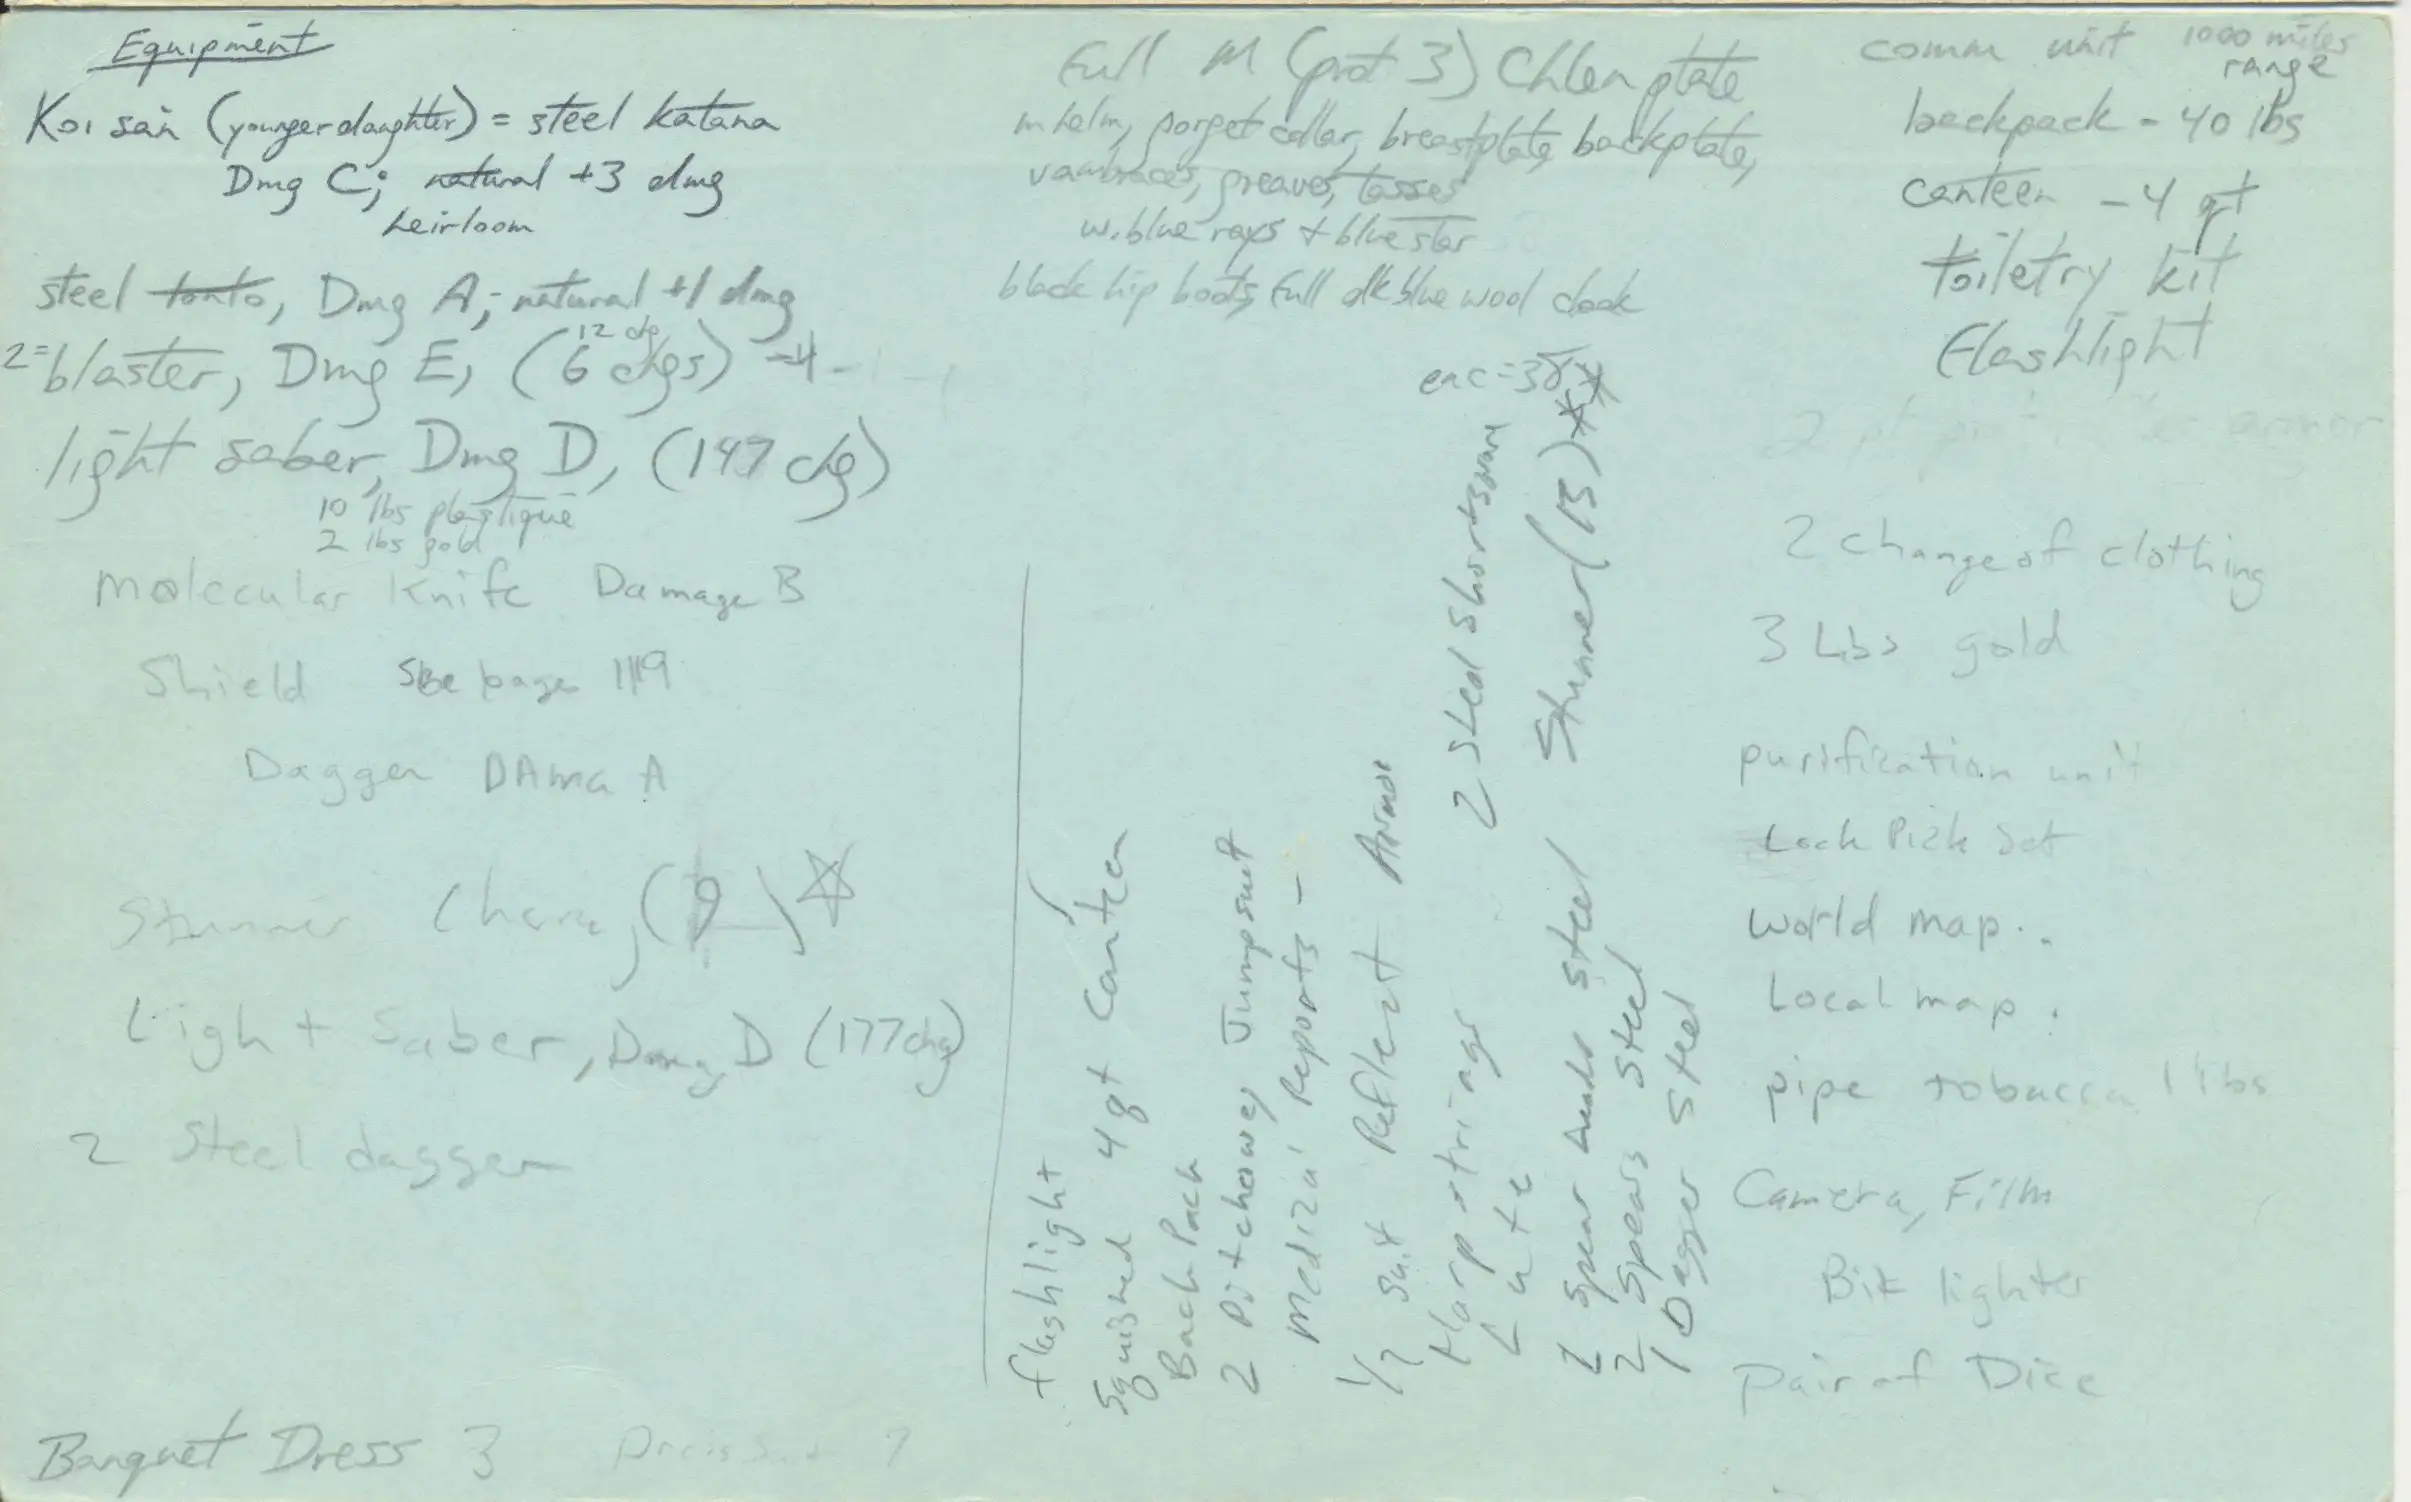 Equipment
Koi san (younger daughter) = steel katana
Dmg C; natural +3 dmg
heirloom
steel tonto, Dmg A; natural +1 dmg
12 chg
2= blaster, Dmg E, (6 chgs) -4
light saber, Dmg D, (197 chg)
10 lbs plastique
2 lbs gold
Molecular Knife Damage B
Shield See page 119
Dagger DAma A
Stunner (9)
Light Saber, Dmg D (177 chg)
2 Steel dagger
Banquet Dress 3
Full M (prot 3) Chlen plate
m helm, gorget collar, breastplate, backplate,
vambraces, greaves, tasses
w. blue rays + blue star
black hip boots, full dk blue wool cloak
enc = 38
flashlight
Squished 4 qt Canteen
Back Pack
2 Pitchowey Jumpsuit
Medical Reports -
1/2 Suit Reflect Armor
Harp strings
Lute
2 Steel Shortsword
Stunner (15) **
Spear heads steel
2 Spears Steel
1 Dagger Steel
comm unit 1000 miles
range
backpack - 40 lbs
canteen - 4 qt
toiletry kit
flashlight
2 pt armor
2 change of clothing
3 Lbs gold
purification unit
Lock Pick Set
World map..
Local map.
pipe tobacca 1 lbs
Camera, Film
Bik lighter
Pair of Dice